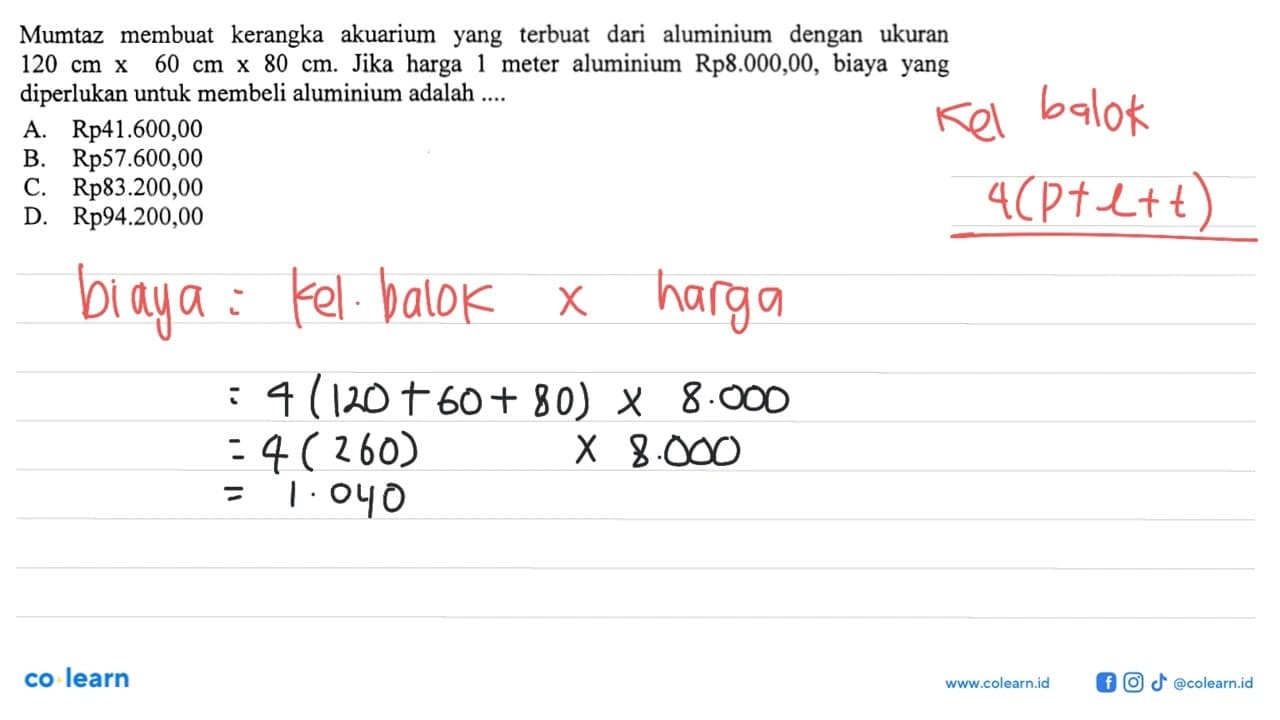 Mumtaz membuat kerangka akuarium yang terbuat dari aluminium dengan ukuran
120 cm x 60 cm x 80 cm. Jika harga 1 meter aluminium Rp8.000,00, biaya yang
diperlukan untuk membeli aluminium adalah ....
A. Rp41.600,00
B. Rp57.600,00
C. Rp83.200,00
D. Rp94.200,00
Kel balok
4(p+l+t)
biaya = kel. balok x harga
= 4(120+60+80) x 8.000
= 4(260) x 8.000
= 1.040
co·learn
www.colearn.id
@colearn.id